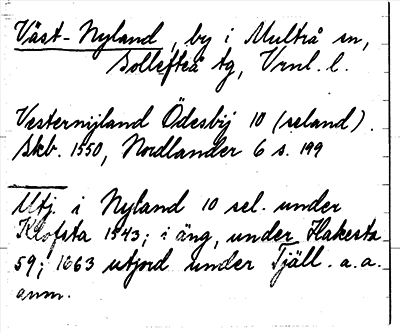 Väst-Nyland, by i Multrå sn,
Sollefteå tg, Vrnl. l.
Vesternyland Ödesbij 10 (seland).
Skb. 1550, Nordlander 6 s. 199
Utj. i Nyland 10 sel. under
Klofsta 1543; i äng, under Hakesta
59; 1663 utjord under Tjäll. a.a.
anm.